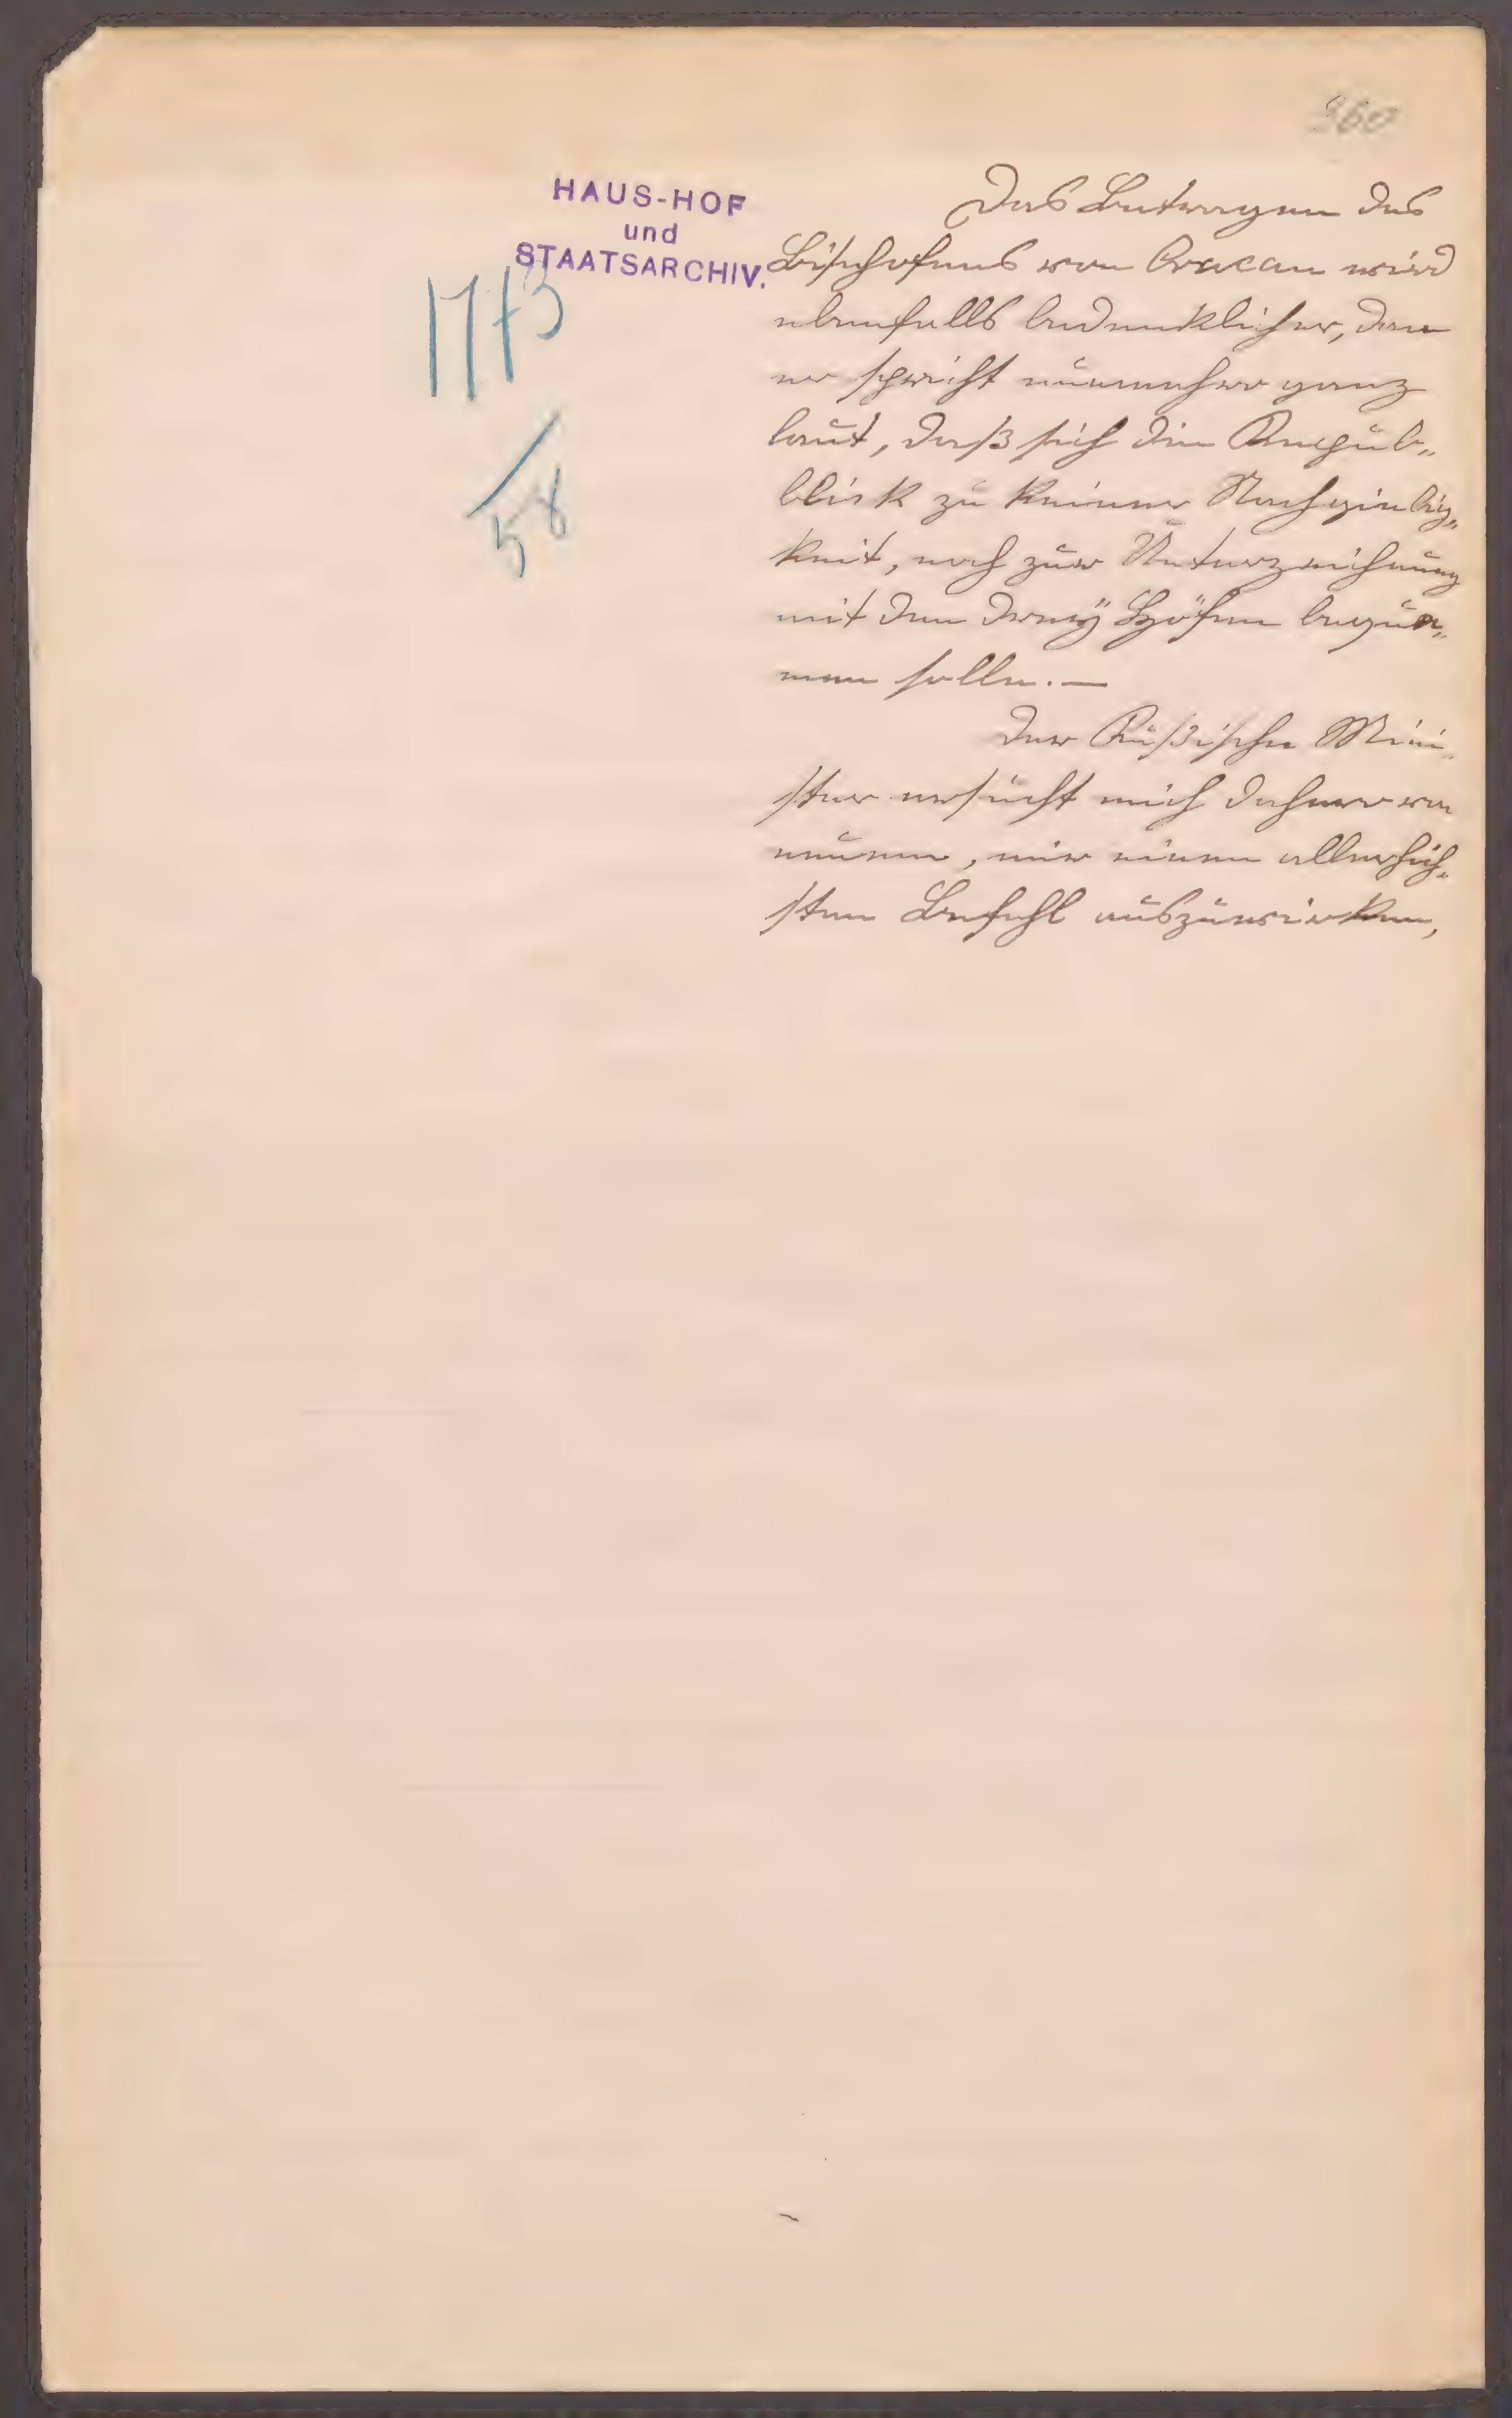 360
HAUS-HOF
und
STAATSARCHIV.
1773
58
Das Betragen des
Bischofens von Cracau wird
ebenfalls bedenklicher, den
er spricht nunmehro ganz
laut, daß sich die Repub„
blick zu keiner Nachgiebig„
keit, noch zur Unterzeichnung
mit den dreÿ Höfen bequem„
men solle. —
Der Rußische Mini„
ster ersucht mich dahero von
neuen, mir einen allerhöch„
sten Befehl auszuwirken,